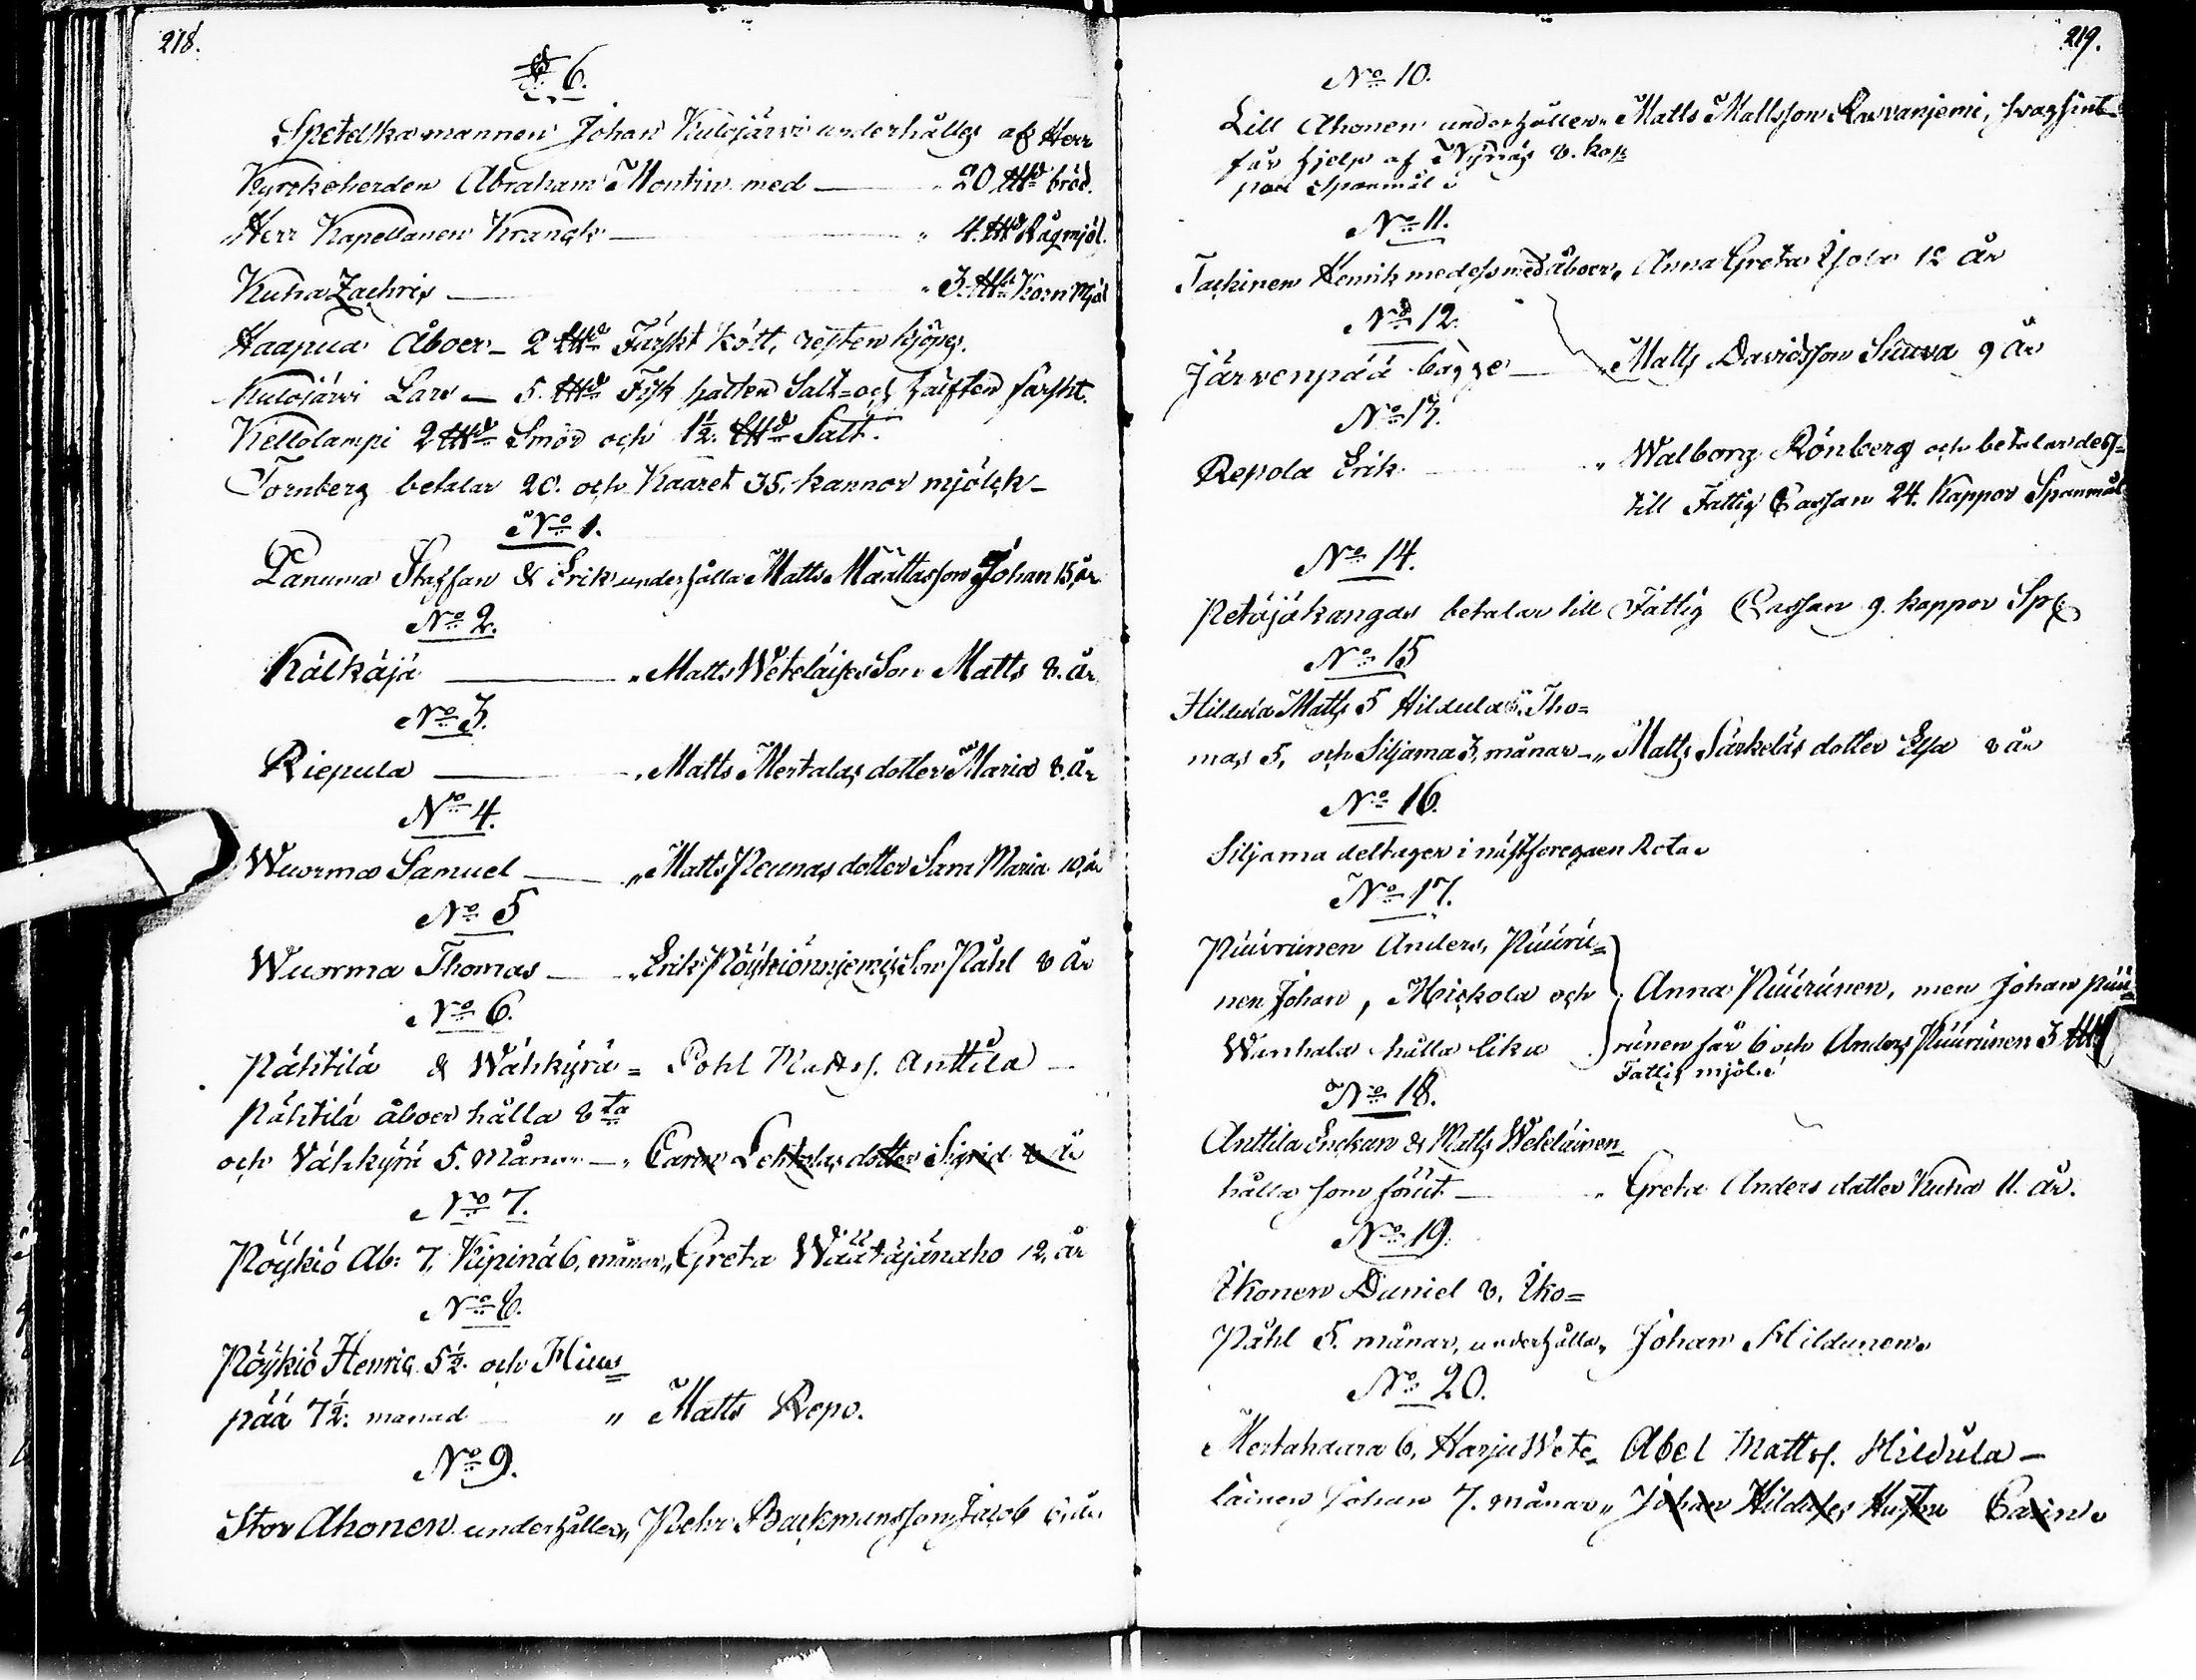 218.
§ 6.
Spetelska mannen Johan Kulojärvi underhålles af Herr
Kyrkoherden Abraham Montin med — „ 20 ℔d bröd.
Herr Kapellanen Krank — „ 4. ℔d Rågmjöl.
Kuha Zachris — „ 3. ℔d Korn Mjöl
Haapua Åboer — 2 ℔d Färskt kött, resten kjöpes.
Kulojärvi Lars — 5. ℔d Fisk hälften Salt= och hälften färskt.
Kellolampi 2 ℔d Smör och 1½. ℔d Salt.
Tornberg betalar 20. och Kaaret 35. kannor mjölck —
No 1.
Panuma Staffan & Erik underhålla Matts Määttas son Johan 15, år
No 2.
Kälkäjä — „ Matts Weteläises Son Matts 8. år
No 3.
Riepula — „ Matts Mertalas dotter Maria 8. År
No 4.
Wuorma Samuel — „ Matts Peunas dotter Sara Maria 10, år
No 5
Wuorma Thomas — „ Erik Pöykiönnjemis Son Påhl 8 År
No 6.
Pähtilä & Wähkyrä = Pohl Matts. Anttila —
Pähtilä åboer hålla 8ta
och Vähkyrä 5. Månar — „ Carin Lehtolas dotter Sigrid 8 År
No 7.
Pöykiö Ab: 7, Kipinä 6, månar „ Greta Väätäjänaho 12, år
No 8.
Pöykiö Henric 5½. och Hius=
pää 7½. månad „ Matts Repo.
No 9.
Stor Ahonen underhåller „ Pehr Backmans son Jacob 6 år
219.
No 10.
Lill Ahonen underhåller „ Matts Mattsson Rovanjemi,
får hjelp af Nynäs 8. kap
par Spanmål
No 11.
Tackinen Henrik med åboer „ Anna Greta Yjola 12 År
No 12.
Järvenpää bägge — „ Matts Davidsson Siuva 9 År
No 13.
Repola Erik — „ Walborg Rönberg och betalar dess=
till Fattig Cassan 24. kappor Spanmål
No 14.
Petäjäkangas betalar till Fattig Cassan 9. kappor Sp
No 15
Hildula Matts 5 Hildula Tho=
mas 5, och Siljama 3, månar — „ Matts Särkeläs dotter Elsa 8 år
No 16.
Siljama deltager i nästforegaen Rota
No 17.
Püürünen Anders, Püürü=
nen Johan, Mickola och „ Anna Püürünen, men Johan Püü=
Wanhala hålla lika rünen får 6 och Anders Püürünen 3 ℔d
Fattig mjöl
No 18.
Anttila Enckan & Matts Weteläinen
hålla som förut — „ Greta Anders dotter Kuha 11. år.
No 19.
Ikonen Daniel 8. Iko=
Påhl 5. månar, underhålla „ Johan Hildunen
No 20.
Mertahaara 6, Harju Wete= Abel Matts. Hildula —
läinen Johan 7. månar „ Johan Hildules Hustru Carin